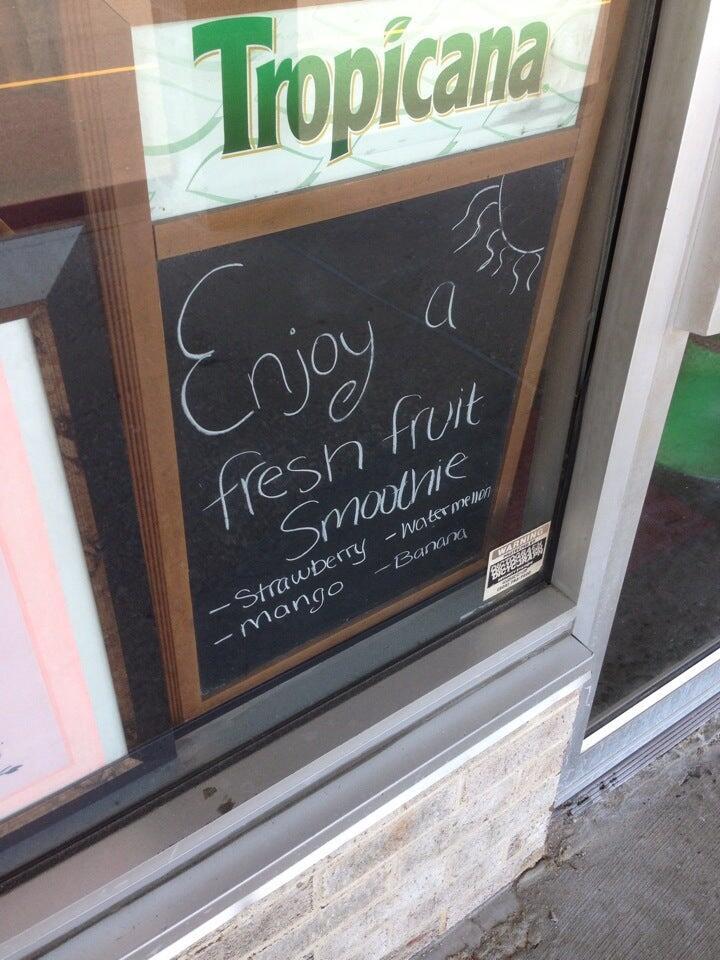 Tropicana
Enjoy a
fresh fruit
Smoothie
- Strawberry - Watermellon
- mango - Banana
WARNING